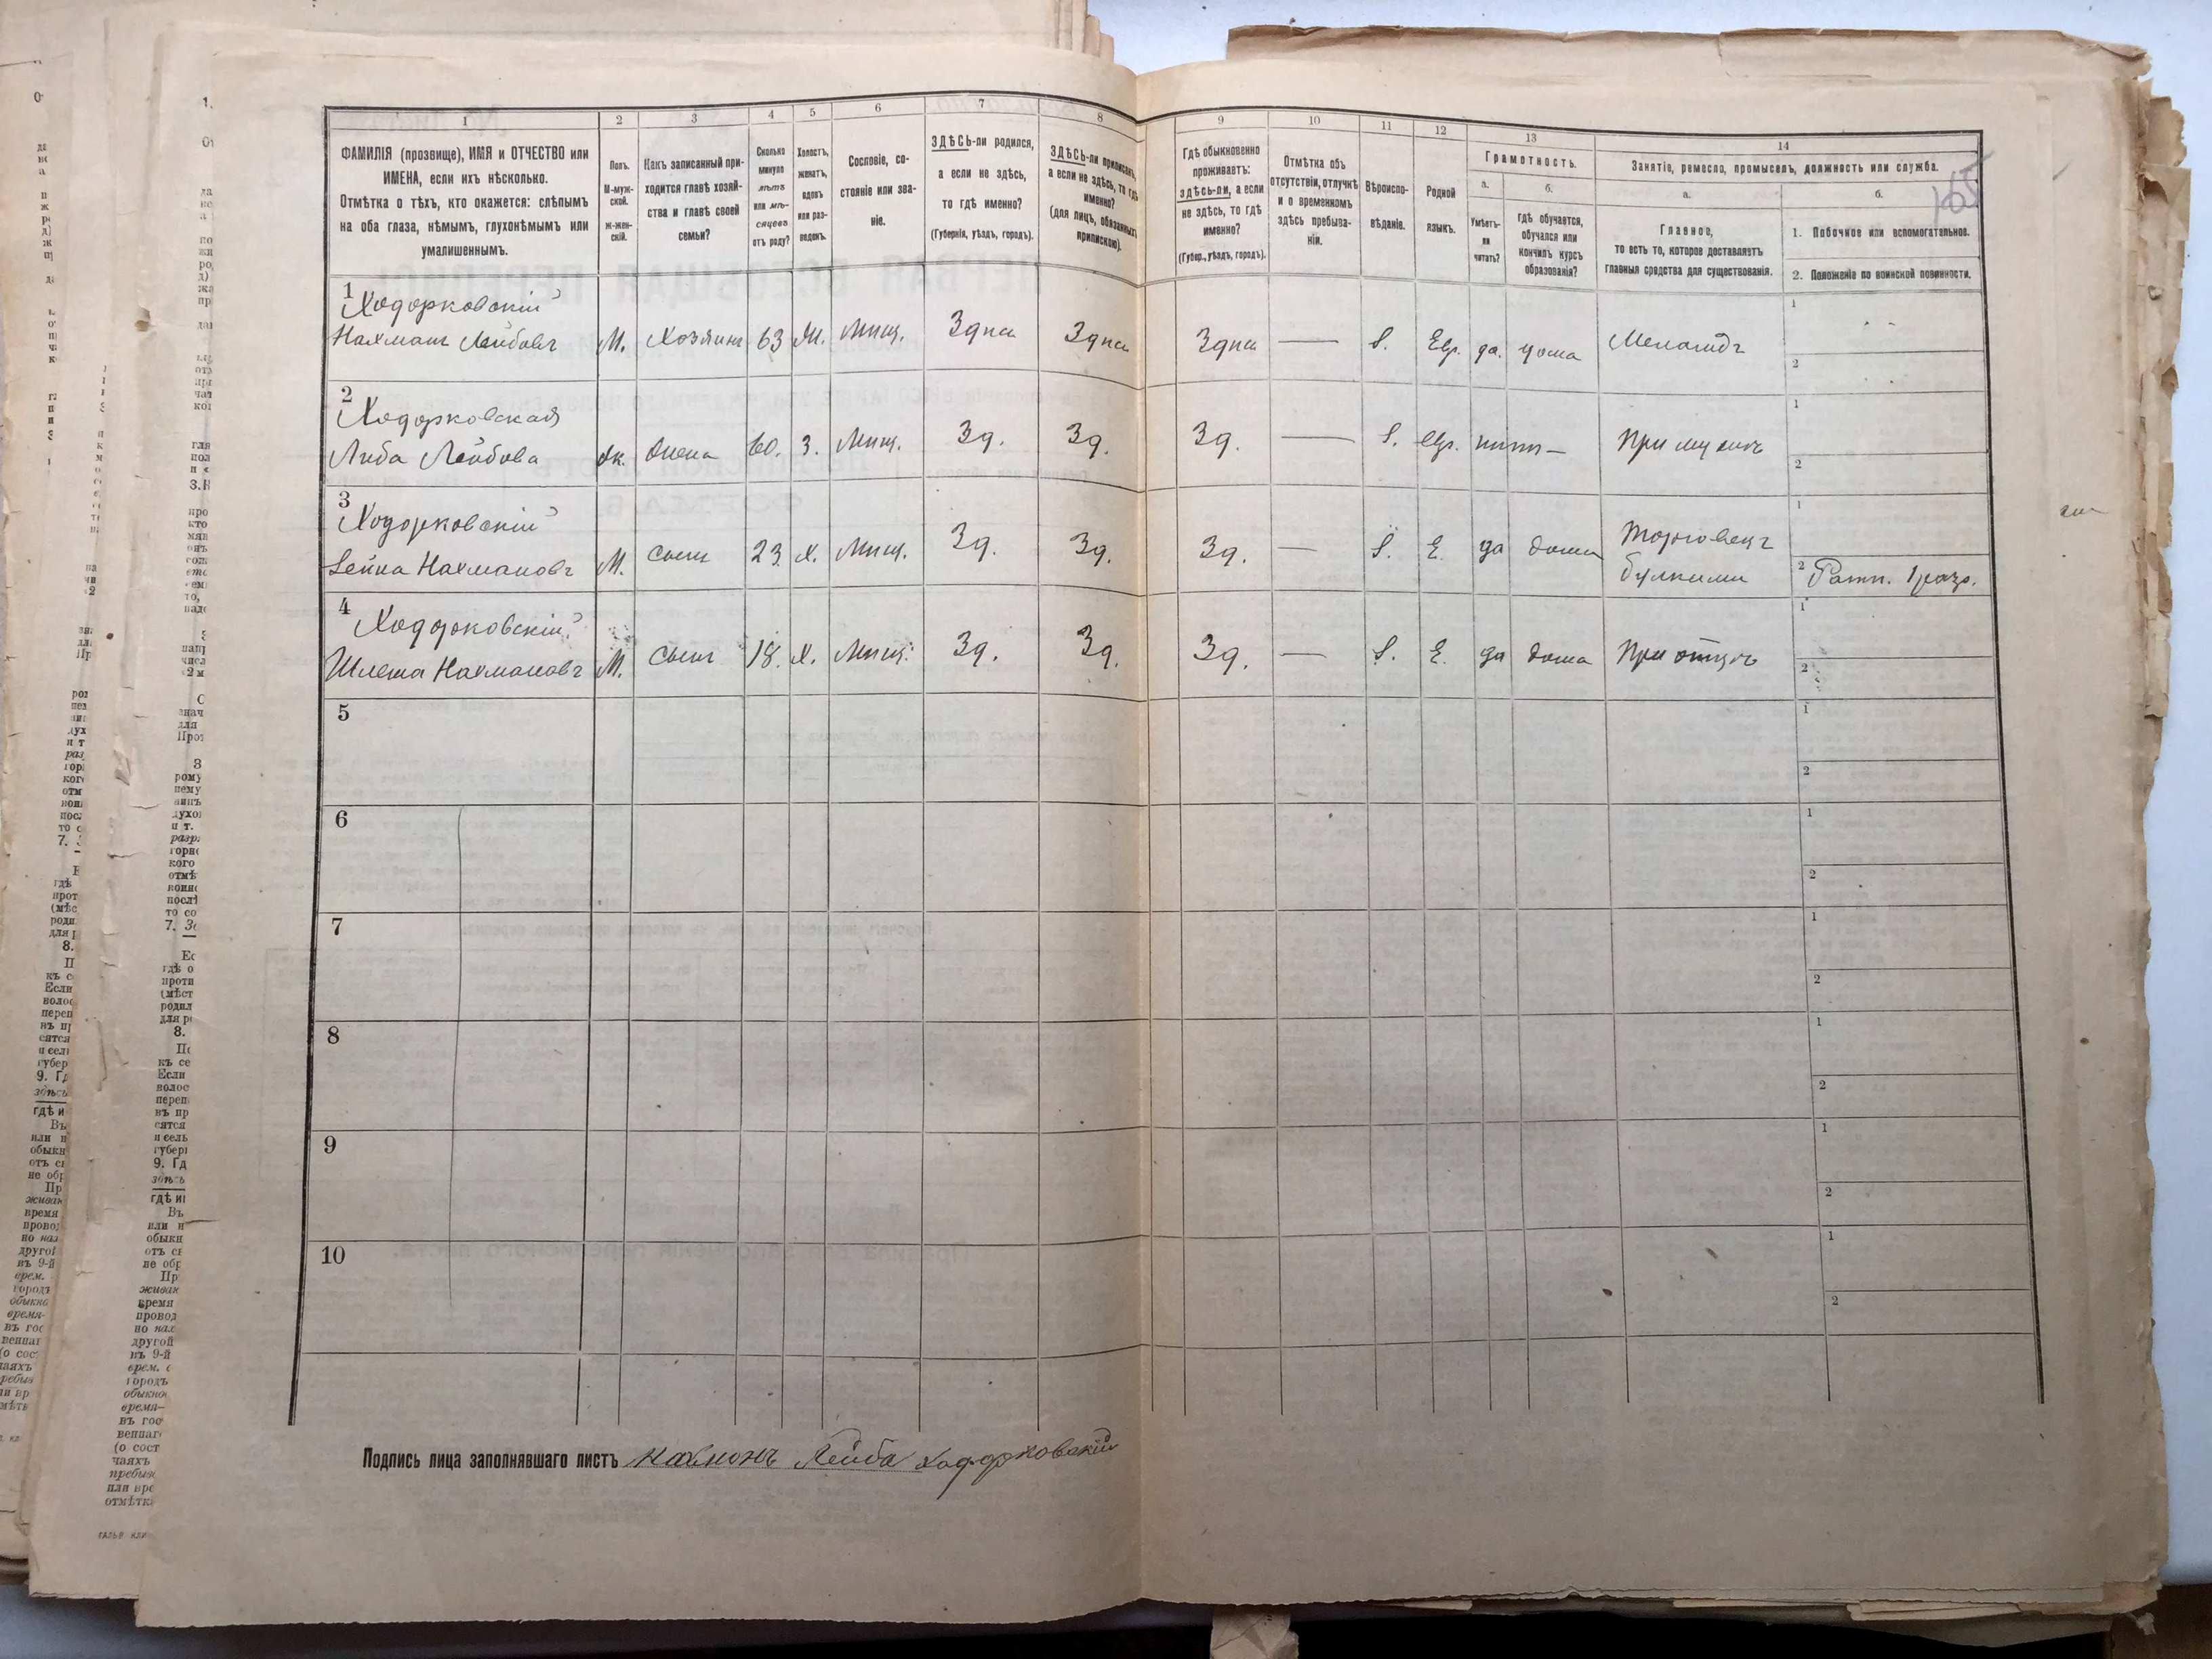 1
2
3
4
5
6
7
8
9
10
11
12
13
14
ФАМИЛІЯ (прозвище), ИМЯ и ОТЧЕСТВО или
ИМЕНА, если ихъ нѣсколько.
Отмѣтка о тѣхъ, кто окажется: слѣпымъ
на оба глаза, нѣмымъ, глухонѣмымъ или
умалишеннымъ.
Полъ.
М-муж-
ской.
ж-жен-
скій.
Какъ записанный при-
ходится главѣ хозяй-
ства и главѣ своей
семьи?
Сколько
минуло
лѣтъ
или мѣ-
сяцевъ
отъ роду?
Холостъ,
женатъ,
вдовъ
или раз-
веденъ.
Сословіе, со-
стояніе или зва-
ніе.
ЗДѢСЬ-ли родился,
а если не здѣсь,
то гдѣ именно?
(Губернія, уѣздъ, городъ).
ЗДѢСЬ-ли приписанъ,
а если не здѣсь, то гдѣ
именно?
(для лицъ, обязанныхъ
припискою).
Гдѣ обыкновенно
проживаетъ:
здѣсь-ли, а если
не здѣсь, то гдѣ
именно?
(Губер., уѣздъ, городъ).
Отмѣтка объ
отсутствіи, отлучкѣ
и о временномъ
здѣсь пребыва-
ніи.
Вѣроиспо-
вѣданіе.
Родной
языкъ.
Грамотность.
а.
Умѣетъ-
ли
читать?
б.
гдѣ обучается,
обучался или
кончилъ курсъ
образованія?
Занятіе, ремесло, промыселъ, должность или служба.
а.
Главное,
то есть то, которое доставляетъ
главныя средства для существованія.
б.
1. Побочное или вспомогательное.
2. Положеніе по воинской повинности.
165
1
Ходорковскій
Нахманъ Лейбовъ М. Хозяинъ 63 Ж. Мѣщ. Здѣсь Здѣсь Здѣсь — І. Евр. да. дома Меламедъ
1
2
2
Ходорковская
Либа Лейбова Ж. Жена 60. З. Мѣщ. Зд. Зд. Зд. — І. Евр. нѣтъ — При мужѣ
1
2
3
Ходорковскій
Лейпа Нахмановъ М. Сынъ 23. Х. Мѣщ. Зд. Зд. Зд. — І. Е. да дома Торговецъ
булками
1
2 Ратн. 1 разр.
4
Ходорковскій
Шлема Нахмановъ М. Сынъ 18. Х. Мѣщ. Зд. Зд. Зд. — І. Е. да дома При отцѣ
1
2
5
1
2
6
1
2
7
1
2
8
1
2
9
1
2
10
1
2
Подпись лица заполнявшаго листъ Нахманъ Лейба Ходорковскій